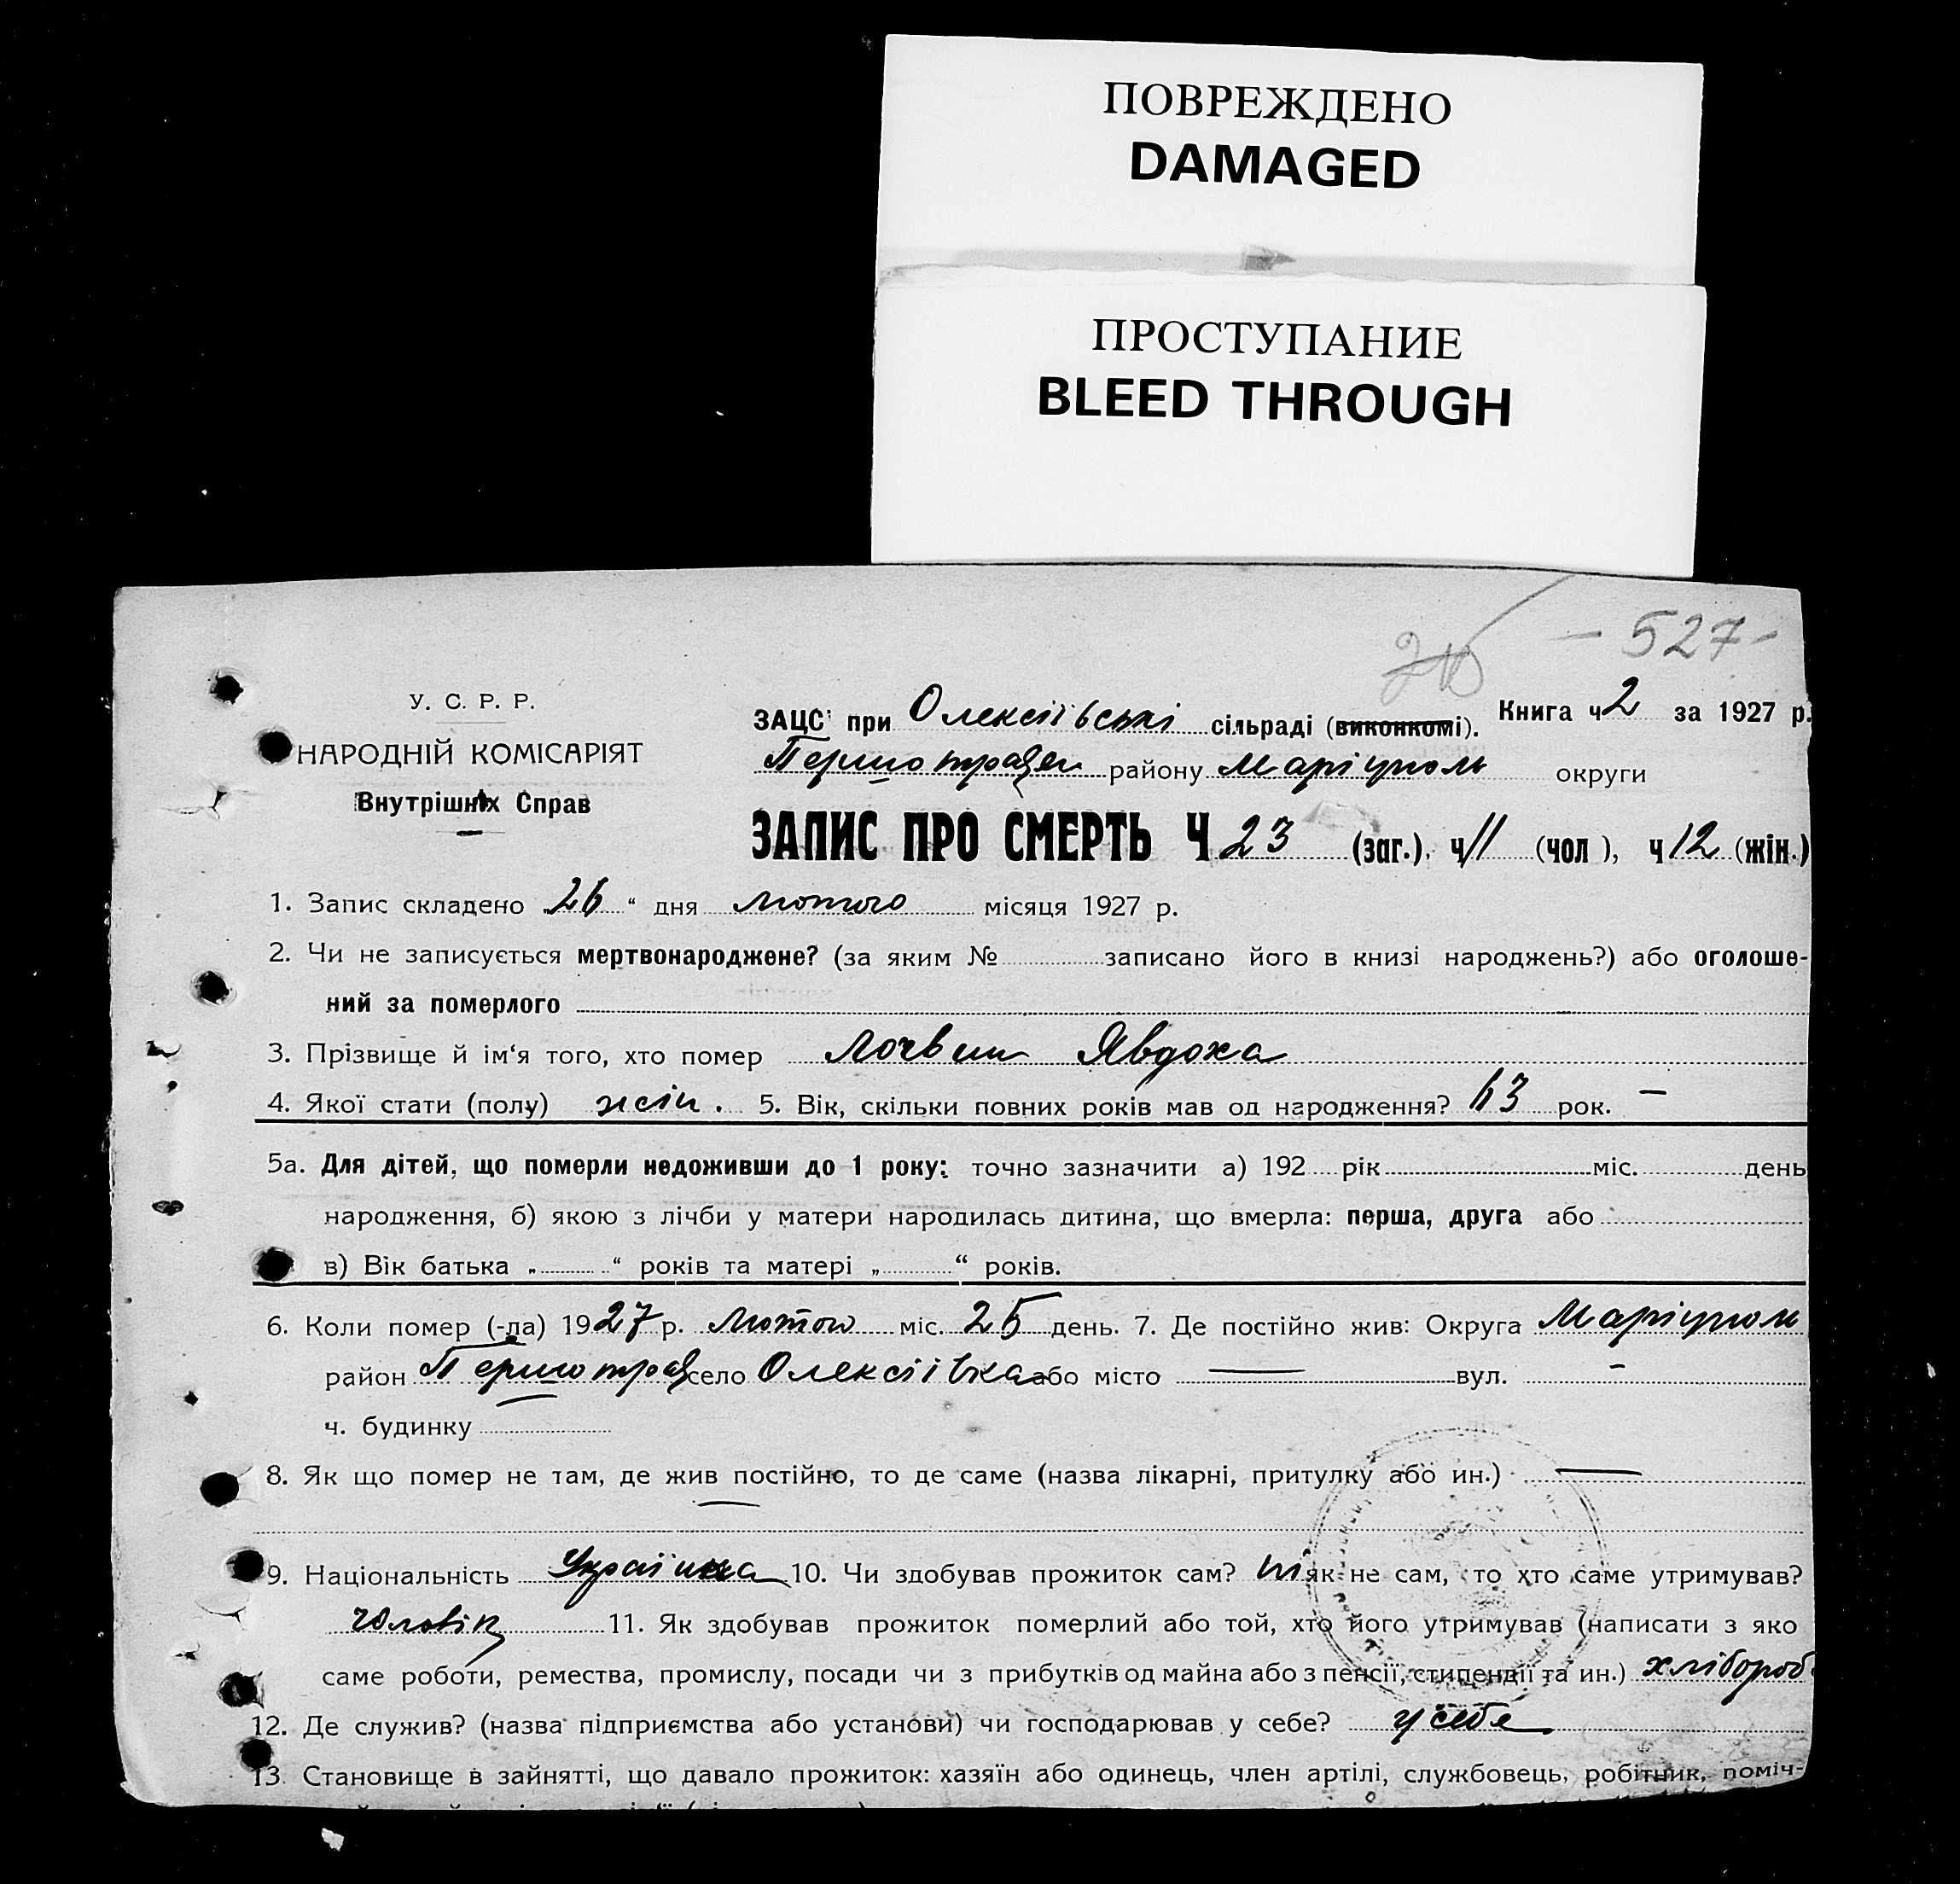 ПОВРЕЖДЕНО
DAMAGED
ПРОСТУПАНИЕ
BLEED THROUGH
- 527 -
У. С. Р. Р.
НАРОДНІЙ КОМІСАРІЯТ
Внутрішніх Справ
ЗАЦС при Олексіївські сільраді (виконкомі). Книга ч 2 за 1927 р.
Першотравен району Маріуполь округи
ЗАПИС ПРО СМЕРТЬ Ч 23 (заг.), ч 11 (чол), ч 12 (жін.)
1. Запис складено „26“ дня лютого місяця 1927 р.
2. Чи не записується мертвонароджене? (за яким № записано його в книзі народжень?) або оголоше-
ний за померлого
3. Прізвище й ім‘я того, хто помер Лочвин Явдоха
4. Якої стати (полу) жін. 5. Вік, скільки повних років мав од народження? 63 рок. —
5а. Для дітей, що померли недоживши до 1 року: точно зазначити а) 192 рік міс. день
народження, б) якою з лічби у матери народилась дитина, що вмерла: перша, друга або
в) Вік батька „ “ років та матері „ “ років.
6. Коли помер (-ла) 1927 р. лютого міс. 25 день. 7. Де постійно жив: Округа Маріуполь
район Першотрав село Олексіївка або місто — вул. -
ч. будинку
8. Як що помер не там, де жив постійно, то де саме (назва лікарні, притулку або ин.) —
9. Національність Українка 10. Чи здобував прожиток сам? ні як не сам, то хто саме утримував?
чоловік 11. Як здобував прожиток померлий або той, хто його утримував (написати з яко
саме роботи, ремества, промислу, посади чи з прибутків од майна або з пенсії, стипендії та ин.) хлібороб
12. Де служив? (назва підприємства або установи) чи господарював у себе? у себе
13. Становище в зайнятті, що давало прожиток: хазяїн або одинець, член артілі, службовець, робітник, поміч-